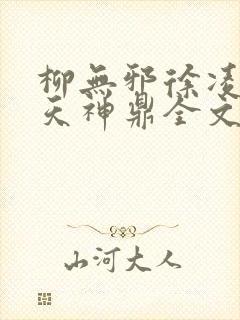 柳無邪徐凌
天神鼎全文
山河大人